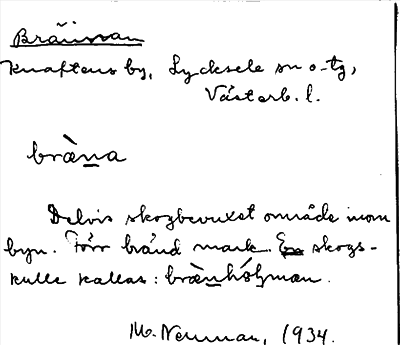 Brännan
Knaftens by, Lycksele sn o. tg,
Västerb. l.
bræna
Delvis skogbevuxet område inom
byn. Förr bränd mark. En skogs-
kulle kallas: brænhólman.
M. Neuman, 1934.